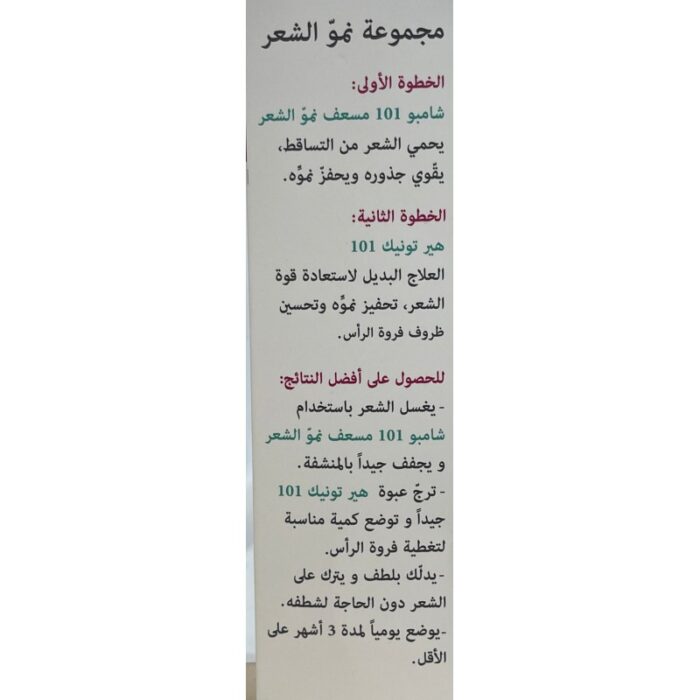 مجموعة نموّ الشعر
الخطوة الأولى:
شامبو 101 مسعف نموّ الشعر
يحمي الشعر من التساقط،
يقّوي جذوره ويحفزّ نموِّه.
الخطوة الثانية:
هير تونيك 101
العلاج البديل لاستعادة قوة
الشعر، تحفيز نموِّه وتحسين
ظروف فروة الرأس.
للحصول على أفضل النتائج:
- يغسل الشعر باستخدام
شامبو 101 مسعف نموّ الشعر
و يجفف جيداً بالمنشفة.
- ترجّ عبوة هير تونيك 101
جيداً و توضع كمية مناسبة
لتغطية فروة الرأس.
- يدلّك بلطف و يترك على
الشعر دون الحاجة لشطفه.
-يوضع يومياً لمدة 3 أشهر على
الأقل.